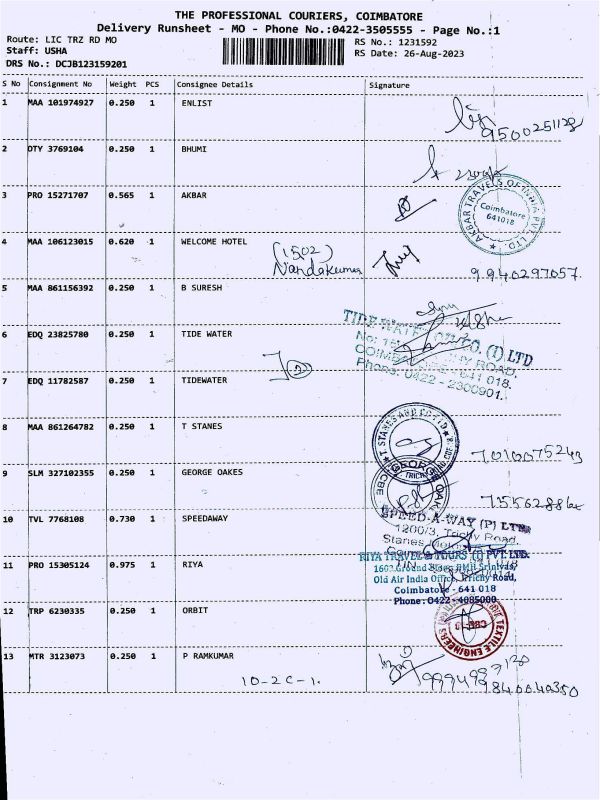 THE PROFESSIONAL COURIERS, COIMBATORE
Delivery Runsheet - MO - Phone No.:0422-3505555 - Page No.:1
Route: LIC TRZ RD MO
RS No.: 1231592
Staff: USHA
RS Date: 26-Aug-2023
DRS No.: DCJB123159201
S No Consignment No Weight PCS Consignee Details Signature
1 MAA 101974927 0.250 1 ENLIST
9500251128
2 DTY 3769104 0.250 1 BHUMI
3 PRO 15271707 0.565 1 AKBAR
AKBAR TRAVELS OF INDIA PVT. LTD.
Coimbatore
641018
4 MAA 106123015 0.620 1 WELCOME HOTEL
(1502)
Nandakumar
9940297057
5 MAA 861156392 0.250 1 B SURESH
6 EDQ 23825780 0.250 1 TIDE WATER
TIDE WATER OIL CO. (I) LTD
ROAD,
641 018.
Phone: 0422 - 2300901.
7 EDQ 11782587 0.250 1 TIDEWATER
8 MAA 861264782 0.250 1 T STANES
T. STANES AND CO LTD
7010075243
9 SLM 327102355 0.250 1 GEORGE OAKES
GEORGE OAKES
CBE
10 TVL 7768108 0.730 1 SPEEDAWAY
SPEED-A-WAY (P) LTD
1200/3, Trichy Road,
Stanes
11 PRO 15305124 0.975 1 RIYA
RIYA TRAVEL & TOURS (I) PVT. LTD.
Old Air India Office, Trichy Road,
Coimbatore - 641 018
Phone: 0422 - 4085000
12 TRP 6230335 0.250 1 ORBIT
TEXTILE ENGINEERS
13 MTR 3123073 0.250 1 P RAMKUMAR
10-2C-1.
9840040350